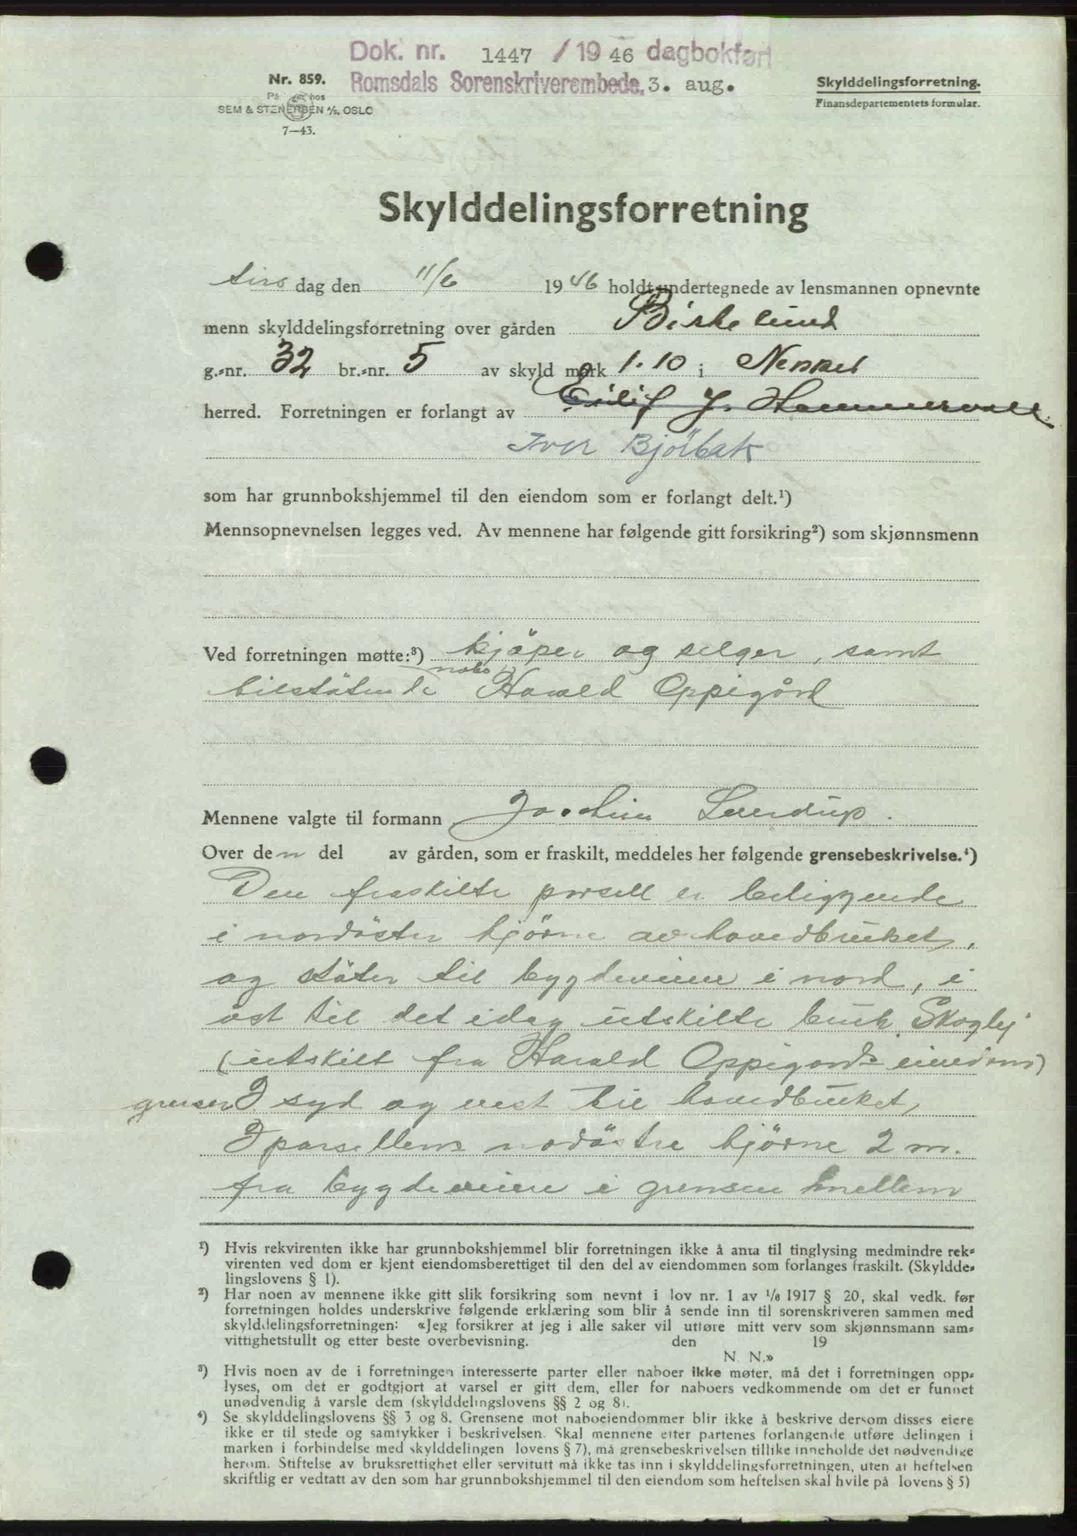 Dok. nr. 1447 / 19 46 dagbokført
Romsdals Sorenskriverembede, 3. aug.
Nr. 859.
SEM & STENERSEN A/S, OSLO
7—43.
Skylddelingsforretning.
Finansdepartementets formular.
Skylddelingsforretning
tirs dag den 11/6 1946 holdt undertegnede av lensmannen opnevnte
menn skylddelingsforretning over gården Birkelund
g.-nr. 32 br.-nr. 5 av skyld mark 1.10 i Nesset
herred. Forretningen er forlangt av Eilif J. Hammervoll
Iver Bjørbak
som har grunnbokshjemmel til den eiendom som er forlangt delt.¹)
Mennsopnevnelsen legges ved. Av mennene har følgende gitt forsikring²) som skjønnsmenn
Ved forretningen møtte:³) kjöper og selger, samt
tilstötende nabo Harald Oppigård
Mennene valgte til formann Jochim Lverdrup.
Over den del av gården, som er fraskilt, meddeles her følgende grensebeskrivelse.⁴)
Den fraskilte parsell er beliggende
i nordöstre hjörne av hovedbruket,
og stöter til bygdeveien i nord, i
öst til det idag utskilte bruk Skogly
(utskilt fra Harald Oppigårds eiendom)
grenser I syd og vest til hovedbruket,
I parsellens nodöstre hjörne 2 m.
fra bygdeveien i grensen mellem
¹) Hvis rekvirenten ikke har grunnbokshjemmel blir forretningen ikke å anta til tinglysing medmindre rek-
virenten ved dom er kjent eiendomsberettiget til den del av eiendommen som forlanges fraskilt. (Skyldde-
lingslovens § 1).
²) Har noen av mennene ikke gitt slik forsikring som nevnt i lov nr. 1 av 1/6 1917 § 20, skal vedk. før
forretningen holdes underskrive følgende erklæring som blir å sende inn til sorenskriveren sammen med
skylddelingsforretningen: «Jeg forsikrer at jeg i alle saker vil utføre mitt verv som skjønnsmann sam-
vittighetsfullt og etter beste overbevisning. den 19
N. N.»
³) Hvis noen av de i forretningen interesserte parter eller naboer ikke møter, må det i forretningen opp-
lyses, om det er godtgjort at varsel er gitt dem, eller for naboers vedkommende om det er funnet
unødvendig å varsle dem (skylddelingslovens §§ 2 og 8).
⁴) Se skylddelingslovens §§ 3 og 8. Grensene mot naboeiendommer blir ikke å beskrive dersom disses eiere
ikke er til stede og samtykker i beskrivelsen. Skal mennene etter partenes forlangende utføre delingen i
marken i forbindelse med skylddelingen lovens § 7), må grensebeskrivelsen tillike inneholde det nødvendige
herom. Stiftelse av bruksrettighet eller servitutt må ikke tas inn i skylddelingsforretningen, uten at heftelsen
skriftlig er vedtatt av den som har grunnbokshjemmel til den eiendom som heftelsen skal hvile på lovens § 5)